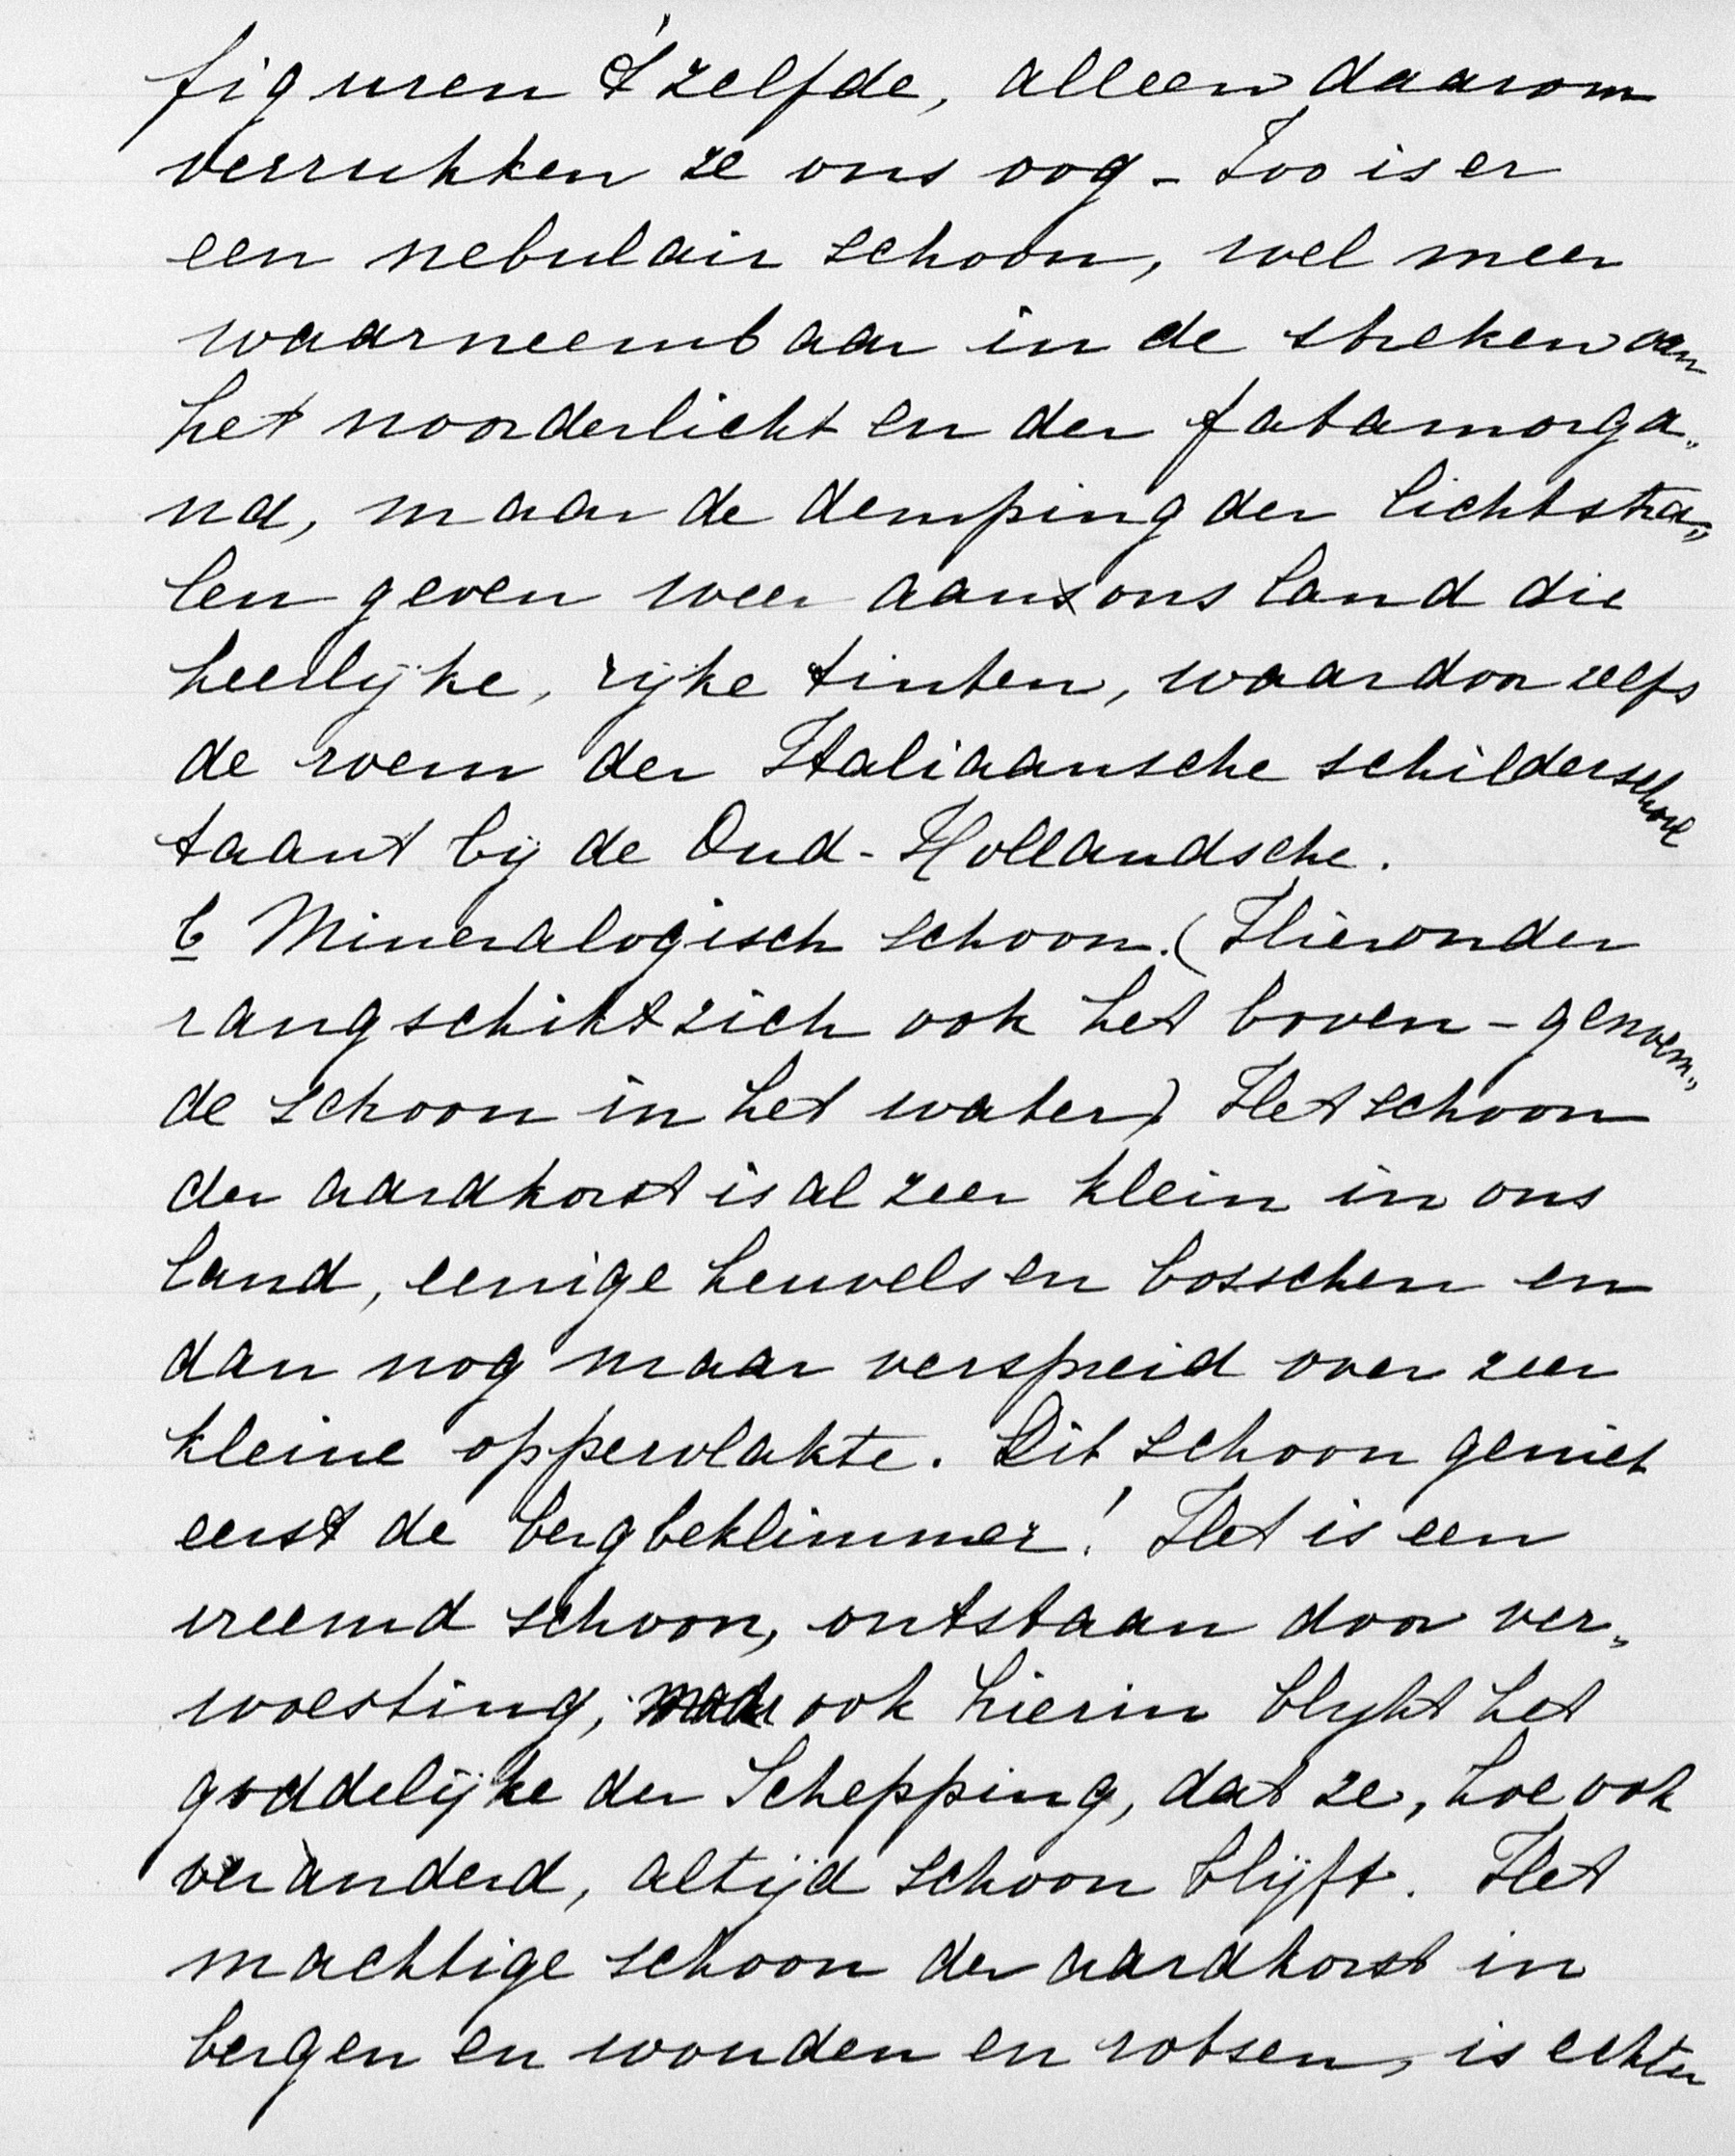 figuren 't zelfde, alleen daarom
verrukken ze ons oog - Zoo is er
een nebulair schoon, wel meer
waarneembaar in de streken van
het noorderlicht en der fatamorga„
na, maar de demping der lichtstra„
len geven weer aan ons land die
heerlijke, rijke tinten, waardoor zelfs
de roem der Italiaansche schilderschool
taant bij de Oud-Hollandsche.
b Mineralogisch schoon. (Hieronder
rangschikt zich ook het boven-genoem„
de schoon in het water) Het schoon
der aardkorst is al zeer klein in ons
land, eenige heuvels en bosschen en
dan nog maar verspreid over zeer
kleine oppervlakte. Dit schoon geniet
eerst de bergbeklimmer! Het is een
vreemd schoon, ontstaan door ver„
woesting, maar ook hierin blijkt het
goddelijke der Schepping, dat ze, hoe ook
veranderd, altijd schoon blijft. Het
machtige schoon der aardkorst in
bergen en wouden en rotsen, is echter